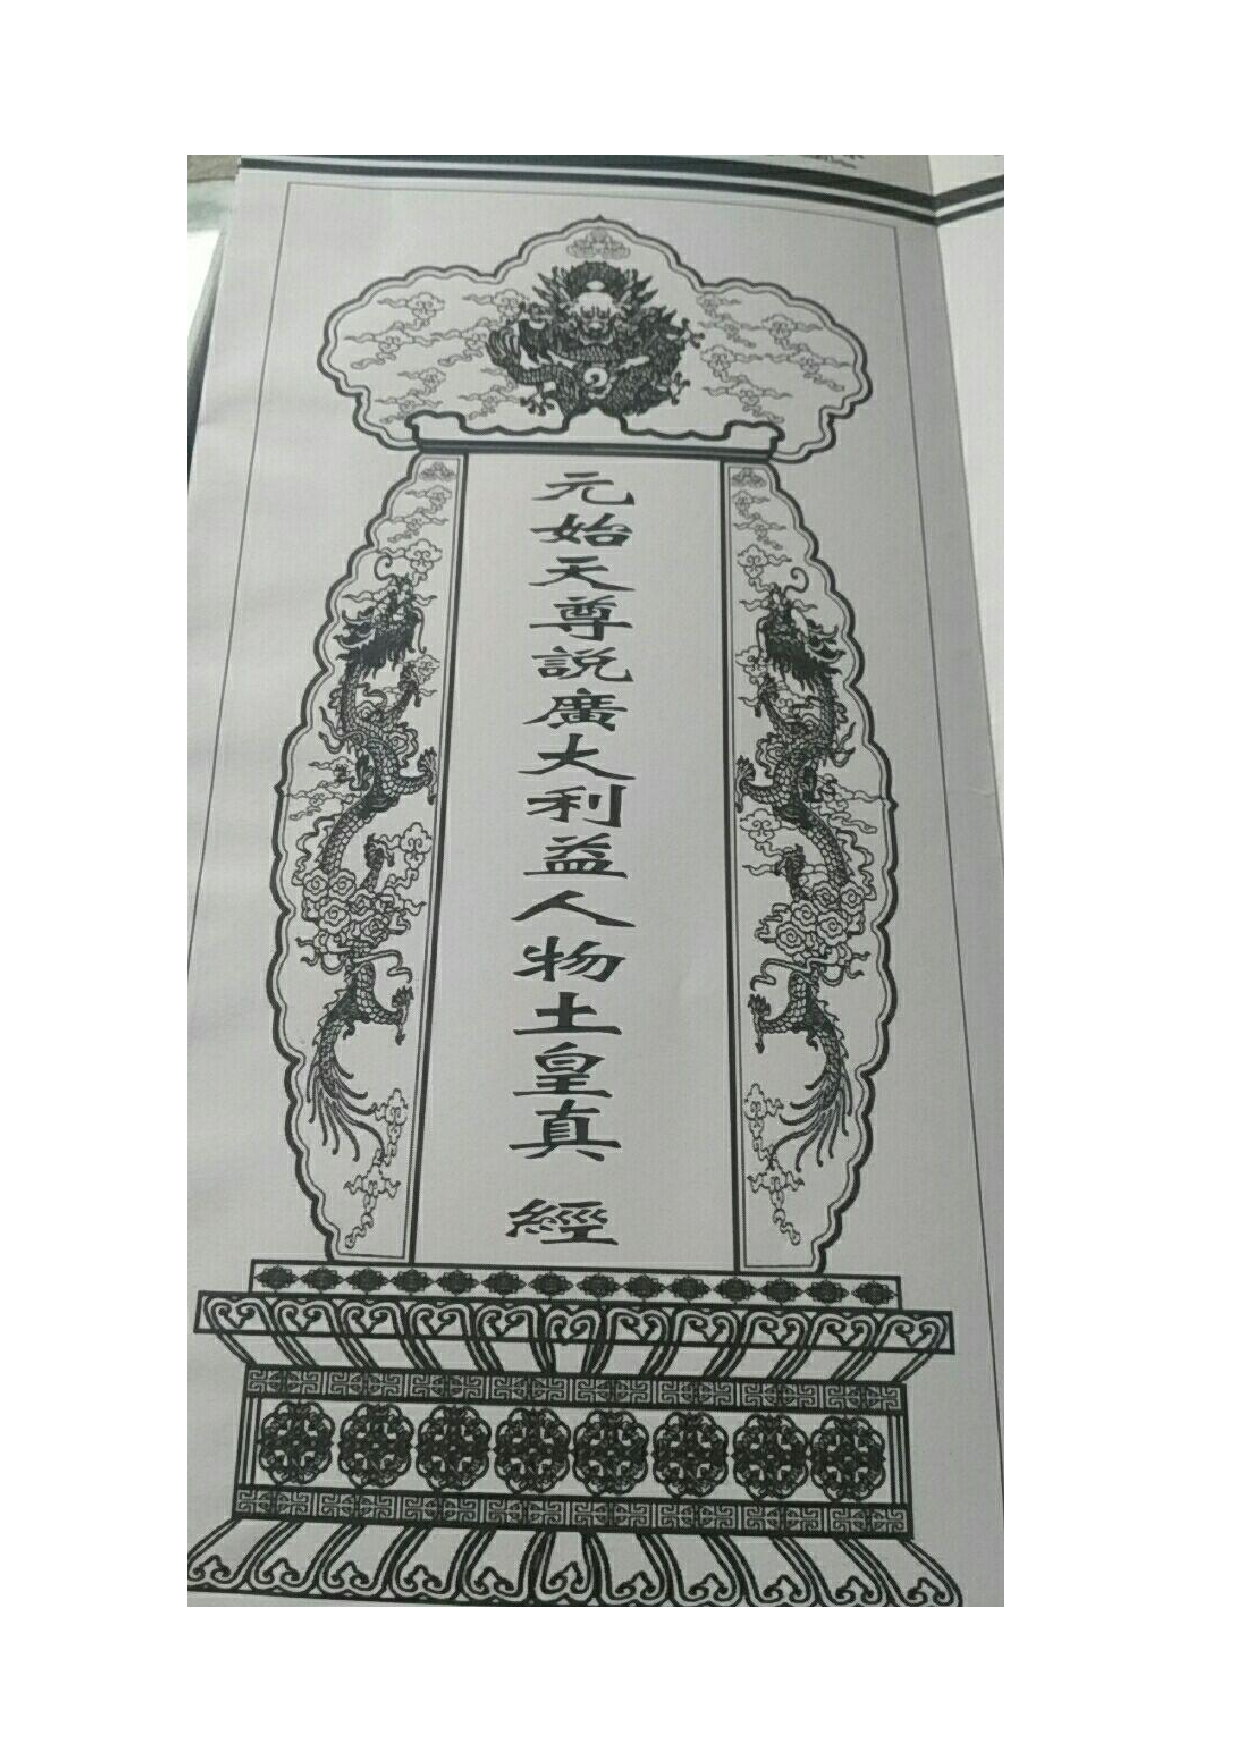 元始天尊説廣大利益人物土皇真經